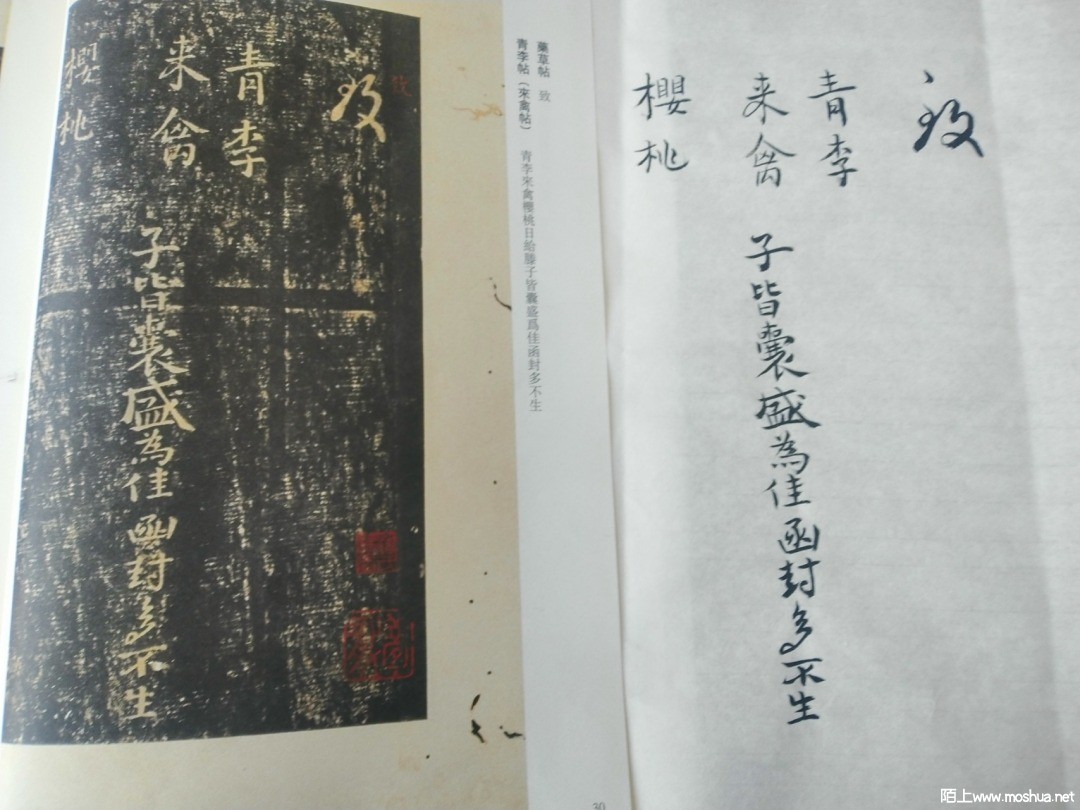 致
青李
来禽
櫻桃
子皆囊盛為佳函封多不生
藥草帖 致
青李帖（來禽帖） 青李來禽櫻桃日給滕子皆囊盛爲佳函封多不生
30
致
青李
来禽
櫻桃
子皆囊盛為佳函封多不生
陌上www.moshua.net